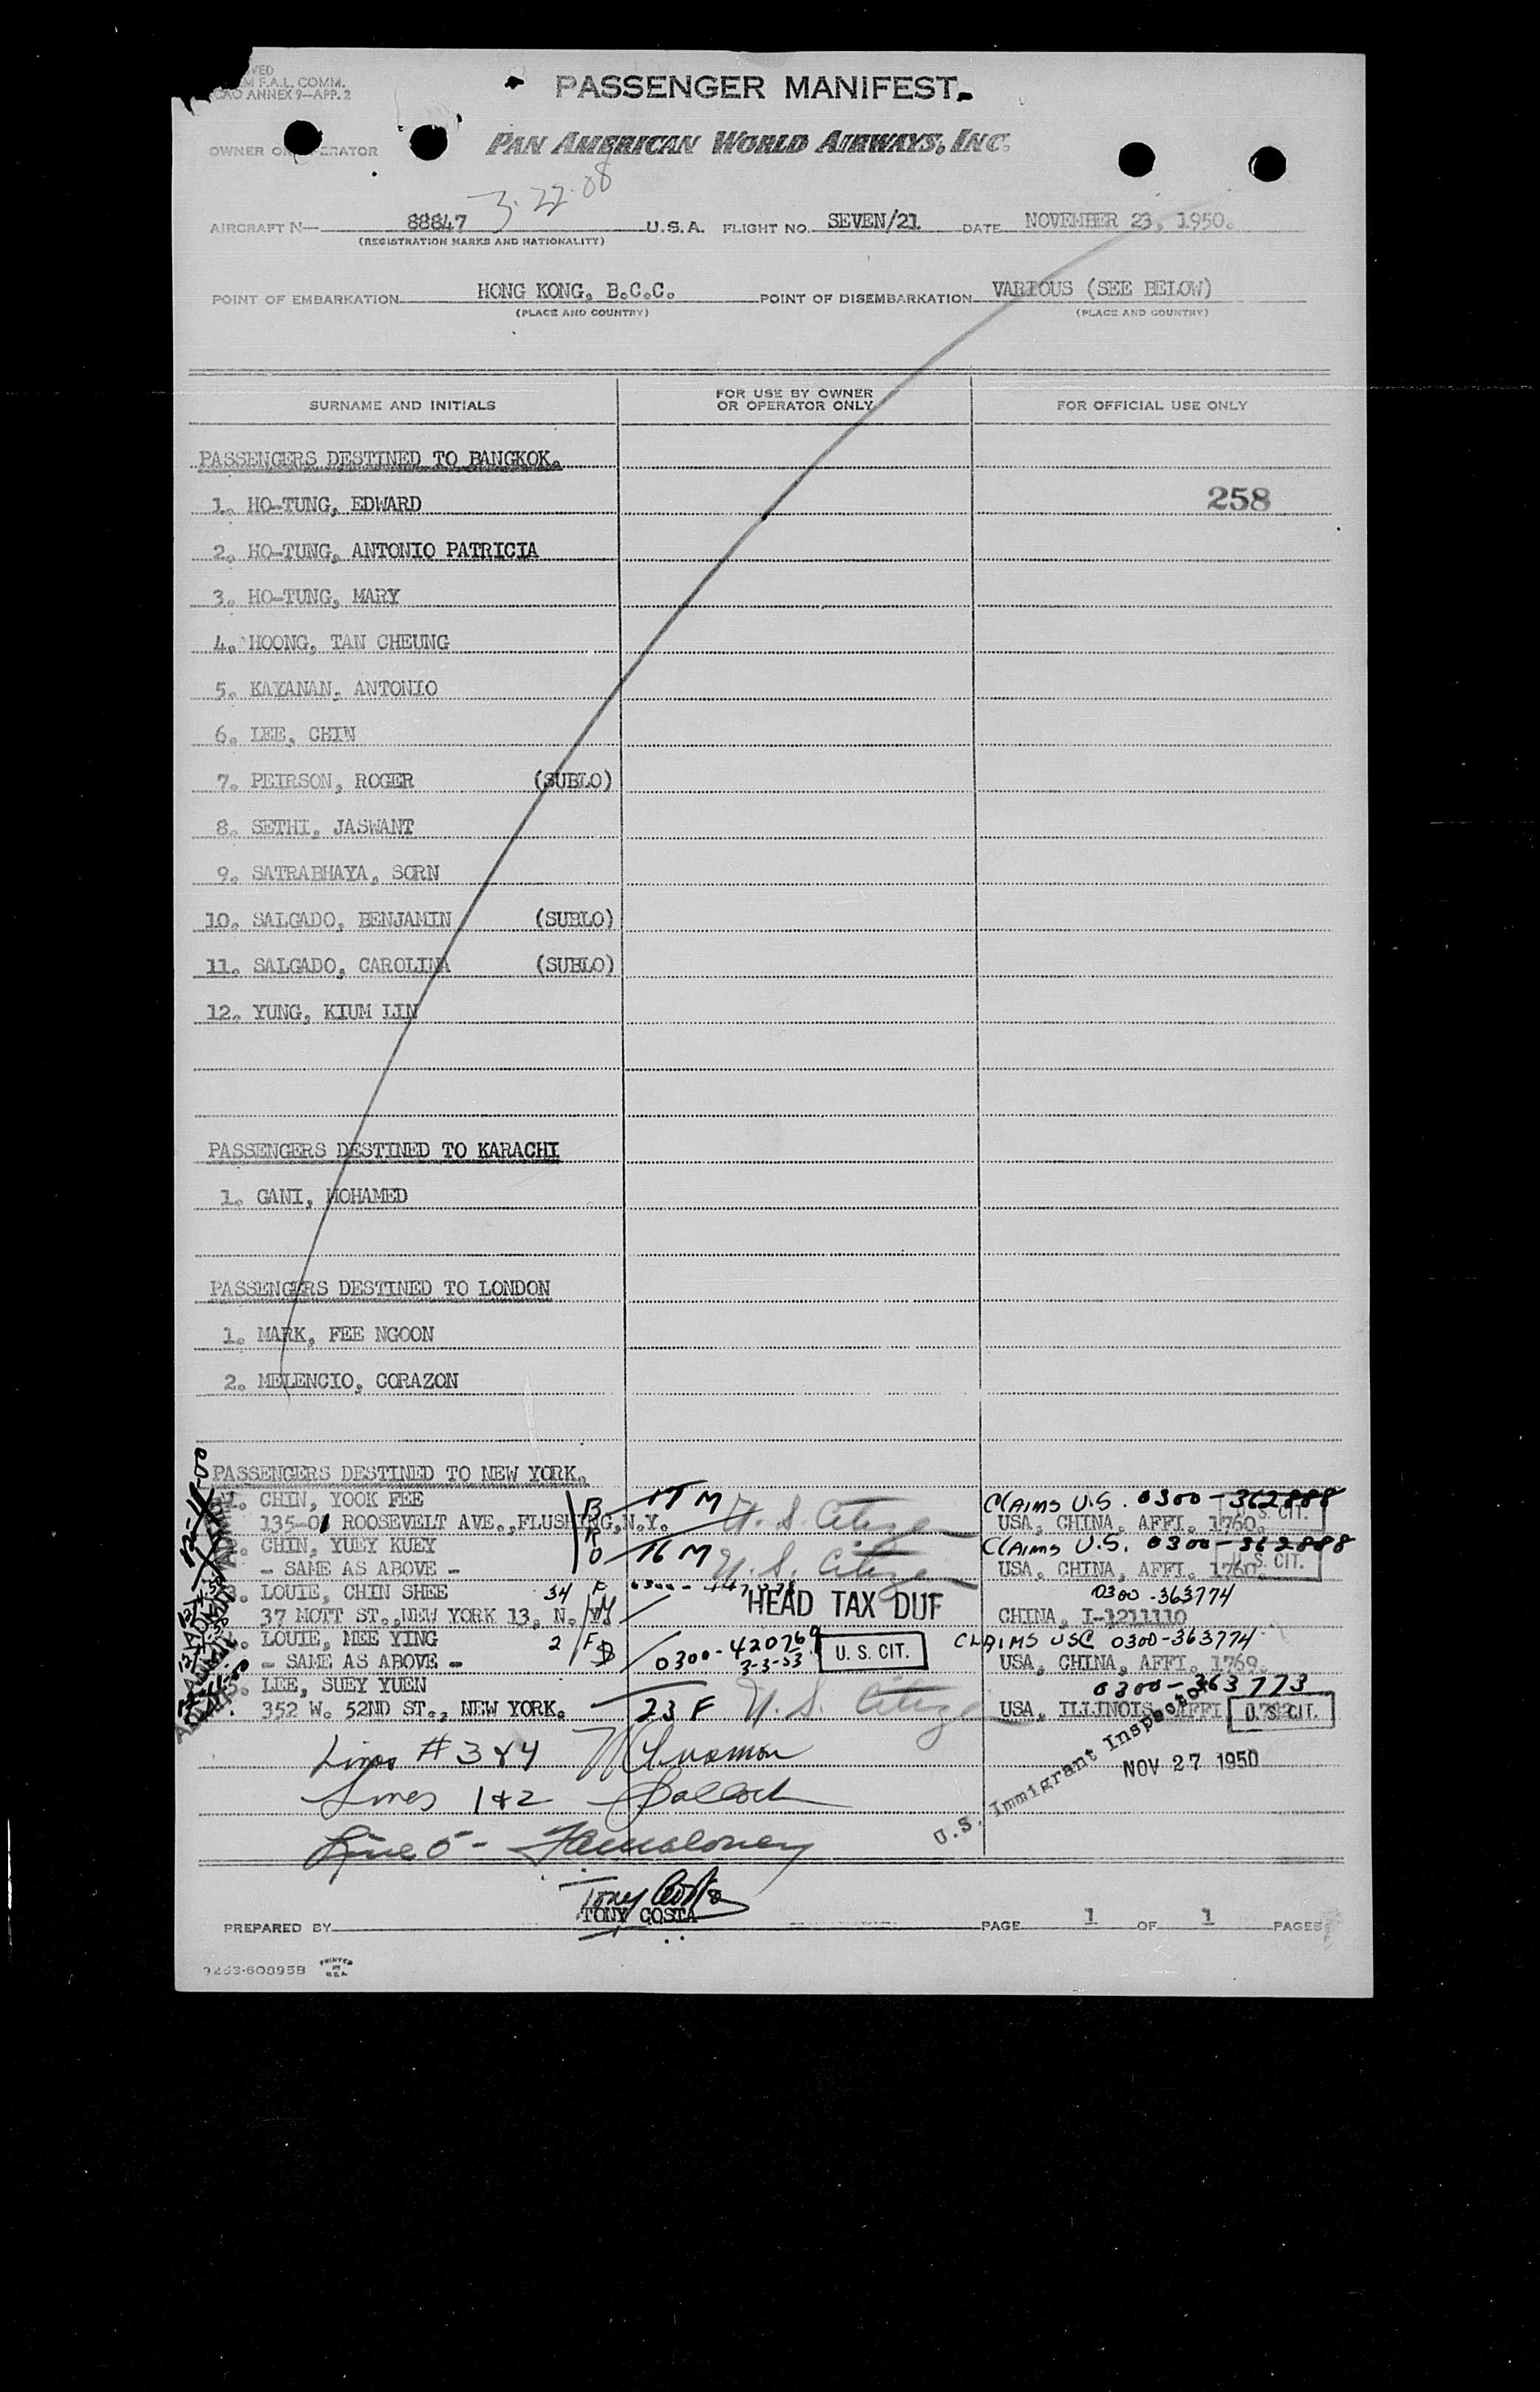 F.A.L. COMM.
ANNEX 9—APP. 2
PASSENGER MANIFEST
OWNER OR OPERATOR PAN AMERICAN WORLD AIRWAYS, INC.
3-22-08
AIRCRAFT N— 88847 U.S.A. FLIGHT NO. SEVEN/21 DATE NOVEMBER 23, 1950.
(REGISTRATION MARKS AND NATIONALITY)
POINT OF EMBARKATION HONG KONG, B.C.C. POINT OF DISEMBARKATION VARIOUS (SEE BELOW)
(PLACE AND COUNTRY) (PLACE AND COUNTRY)
SURNAME AND INITIALS FOR USE BY OWNER OR OPERATOR ONLY FOR OFFICIAL USE ONLY
PASSENGERS DESTINED TO BANGKOK.
1. HO-TUNG, EDWARD 258
2. HO-TUNG, ANTONIO PATRICIA
3. HO-TUNG, MARY
4. HOONG, TAN CHEUNG
5. KAYANAN, ANTONIO
6. LEE, CHIN
7. PEIRSON, ROGER (SUBLO)
8. SETHI, JASWANT
9. SATRABHAYA, SORN
10. SALGADO, BENJAMIN (SUBLO)
11. SALGADO, CAROLINA (SUBLO)
12. YUNG, KIUM LIN
PASSENGERS DESTINED TO KARACHI
1. GANI, MOHAMED
PASSENGERS DESTINED TO LONDON
1. MARK, FEE NGOON
2. MELENCIO, CORAZON
PASSENGERS DESTINED TO NEW YORK.
1. CHIN, YOOK FEE 17 M U.S. Citizen Claims U.S. 0300-362888
135-01 ROOSEVELT AVE., FLUSHING, N.Y. USA, CHINA, AFFI. 1760. U.S. CIT.
2. CHIN, YUEY KUEY 16 M U.S. Citizen Claims U.S. 0300-362888
- SAME AS ABOVE - USA, CHINA, AFFI. 1760. U.S. CIT.
3. LOUIE, CHIN SHEE 34 F HEAD TAX DUE 0300-363774
37 MOTT ST., NEW YORK 13, N. Y. CHINA, I-1211110
4. LOUIE, MEE YING 2 F 0300-420769 U. S. CIT. CLAIMS USC 0300-363774
- SAME AS ABOVE - 3-3-53 USA, CHINA, AFFI. 1769.
5. LEE, SUEY YUEN 0300-363773
352 W. 52ND ST., NEW YORK. 23 F U.S. Citizen USA, ILLINOIS AFFI U.S. CIT.
Lines # 3 & 4
Lines 1 & 2
Line 5 -
U.S. Immigrant Inspector
NOV 27 1950
Tony Costa
PREPARED BY TONY COSTA PAGE 1 OF 1 PAGES
PRINTED IN U.S.A.